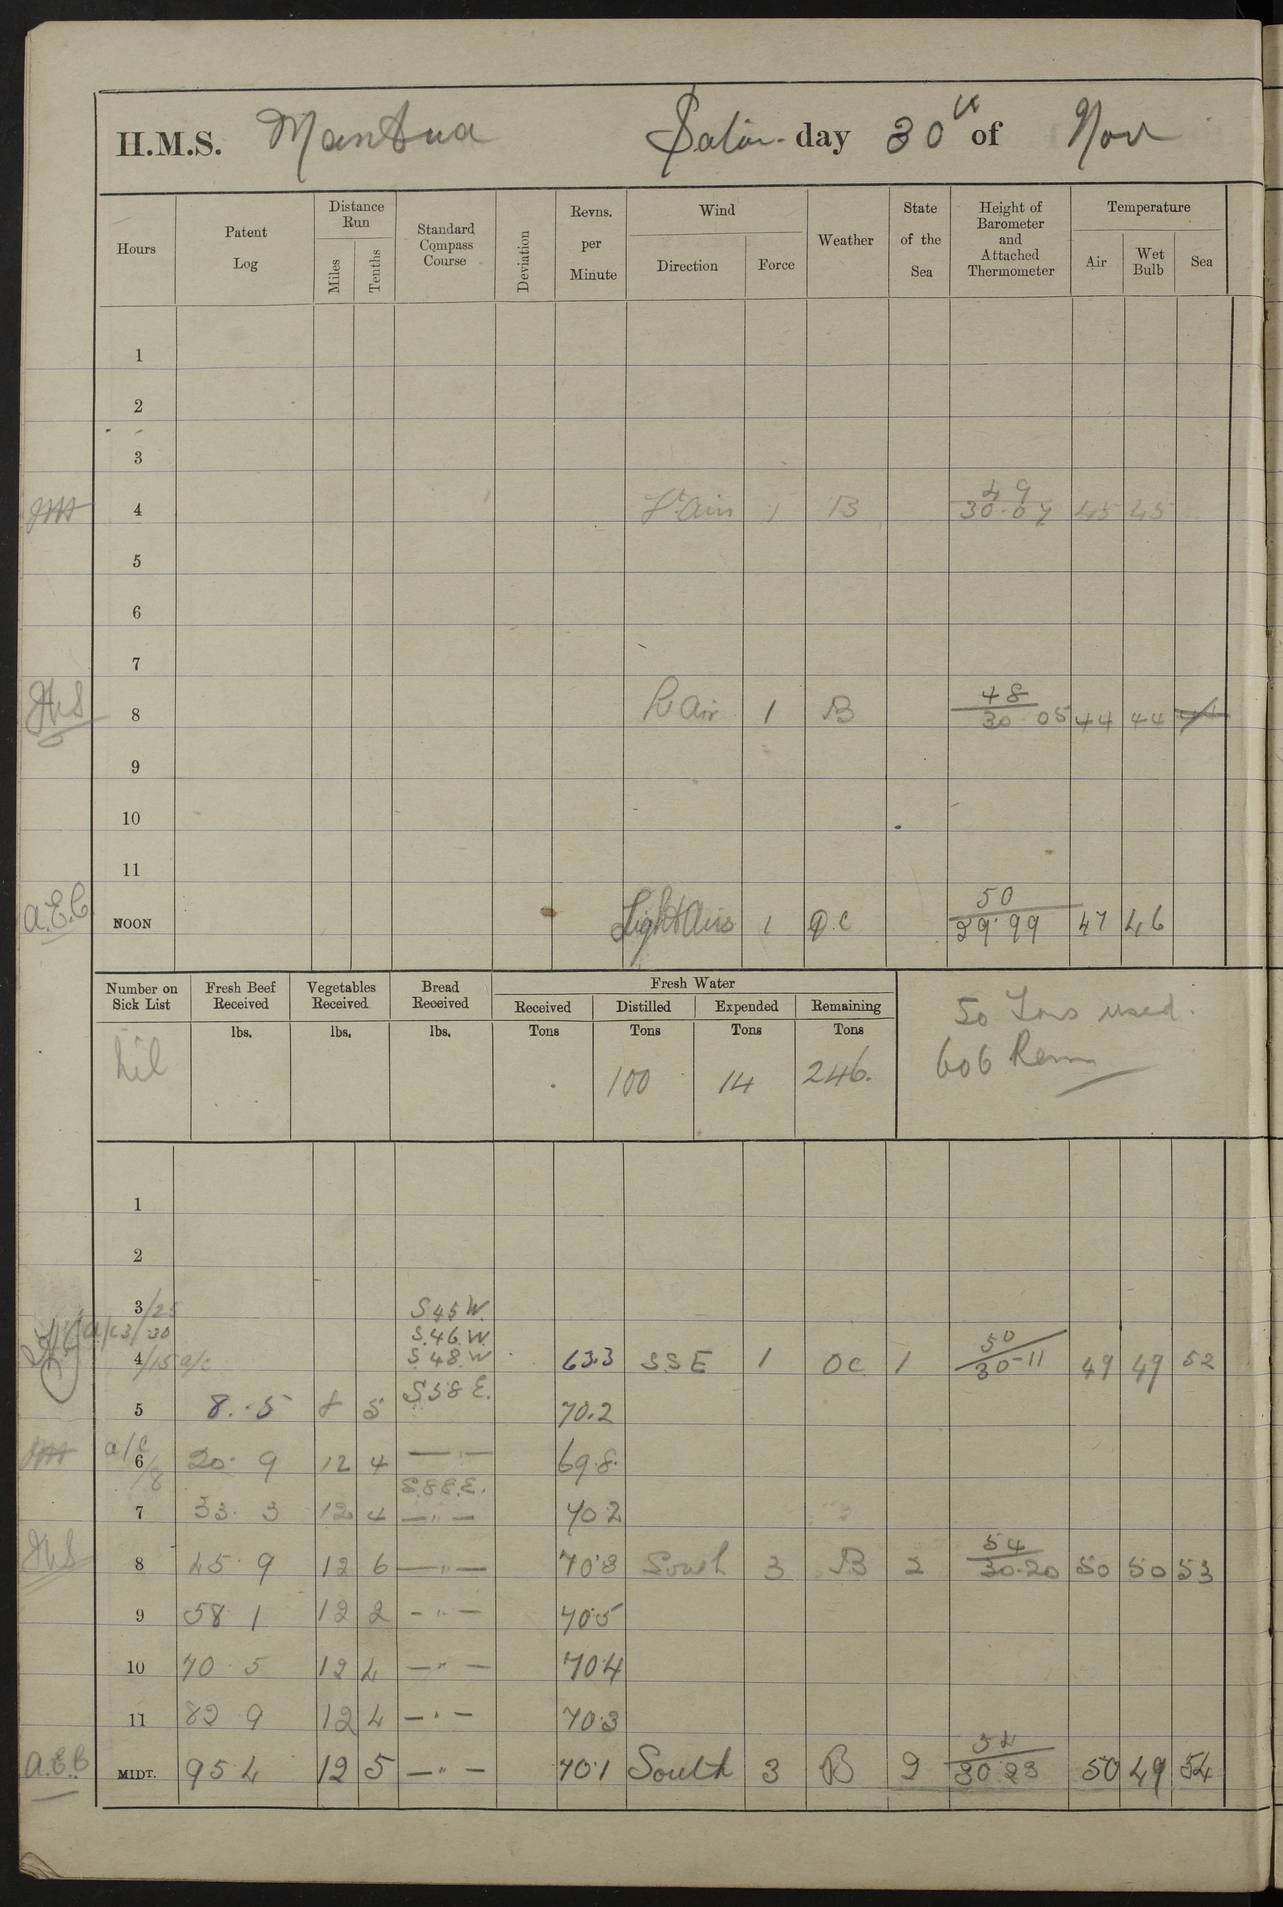 H.M.S. Mantua Satur-day 30th of Nov
Hours Patent Log Distance Run Miles Tenths Standard Compass Course Deviation Revns. per Minute Wind Direction Force Weather State of the Sea Height of Barometer and Attached Thermometer Temperature Air Wet Bulb Sea
1
2
3
49
4 Lt Airs 1 B 30.07 45 45
5
6
7
48
JHS 8 Lt Air 1 B 30 05 44 44
9
10
11
50
A.E.C. NOON Light Airs 1 O.C 29.99 47 46
Number on Sick List Fresh Beef Received Vegetables Received Bread Received Fresh Water
Received Distilled Expended Remaining
lbs. lbs. lbs. Tons Tons Tons Tons
50 Tons used.
Nil 100 14 246.
606 Rem
1
2
3/25 S 45 W.
a/c 3/30 S.46.W.
50
4/15 a/c S 48. W 63.3 SSE 1 OC 1 30-11 49 49 52
S 58 E.
5 8. .5 8 5 70.2
a/c
6 20. 9 12 4 — " — 69.8.
/8 S.88.E.
7 33. 3 12 4 — " — 70 2
54
JHS 8 45. 9 12 6 — " — 70.8 South 3 B 2 30.20 50 50 53
9 58 1 12 2 — " — 70.5
10 70. 5 12 4 — " — 70.4
11 82 9 12 4 — " — 70.3
54
A.E.C. MIDT. 95 4 12 5 — " — 70.1 South 3 B 2 30 23 50 49 54